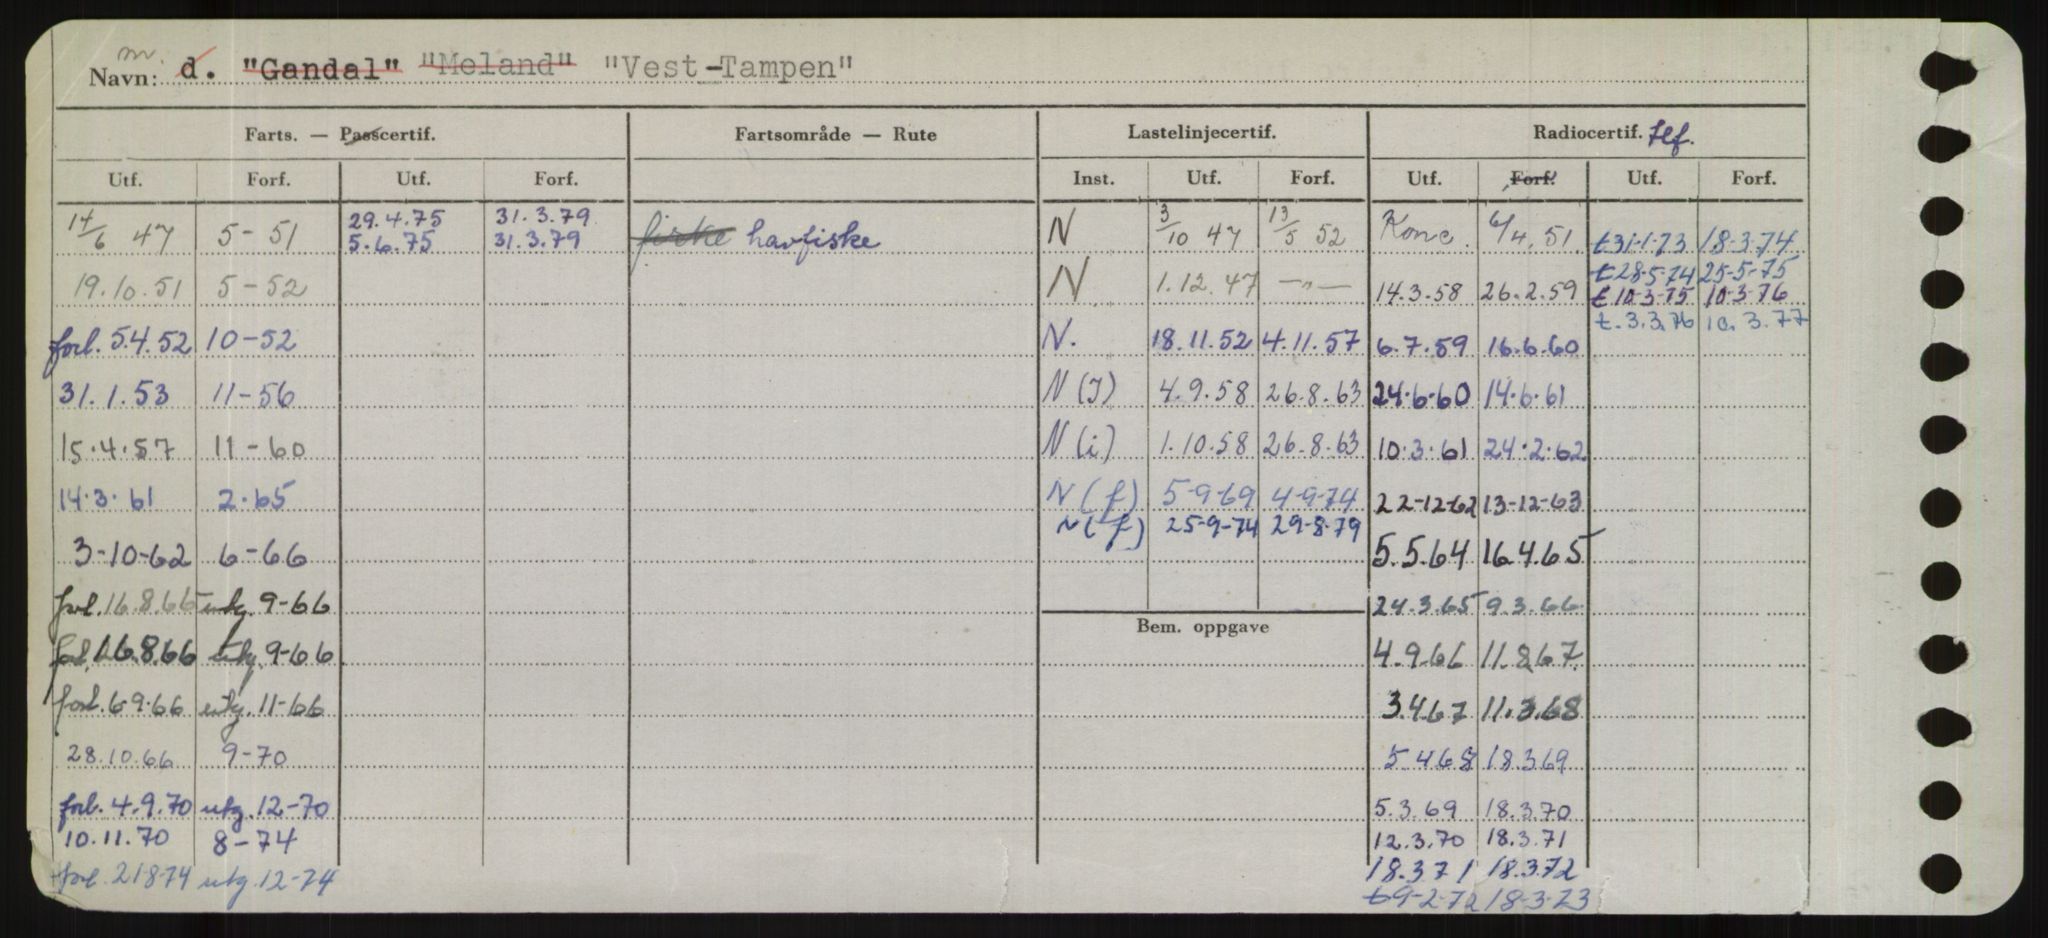 m.
Navn: d. "Gandal" "Meland" "Vest-Tampen"
Farts. — Passcertif. Fartsområde — Rute Lastelinjecertif. Radiocertif. tlf.
Utf. Forf. Utf. Forf. Inst. Utf. Forf. Utf. Forf. Utf. Forf.
14/6 47 5-51 29.4.75 31.3.79 fiske havfiske N 3/10 47 13/5 52 Konc. 6/4.51 t31-1-73 18-3-74
5.6.75 31.3.79
19.10.51 5-52 N 1.12.47 —"— 14.3.58 26.2.59 t28-5-74 25-5-75
t10-3-75 10-3-76
t.3.3.76 10.3.77
forl. 5.4.52 10-52 N. 18.11.52 4.11.57 6.7.59 16.6.60
31.1.53 11-56 N(I) 4.9.58 26.8.63 24.6.60 14.6.61
15.4.57 11-60 N(i) 1.10.58 26.8.63 10.3.61 24.2.62
14.3.61 2.65 N(f) 5-9-69 4-9-74 22-12-62 13-12-63
N(f) 25-9-74 29-8-79
3-10-62 6-66 5.5.64 16.4.65
forl. 16.8.66 utg. 9-66 24.3.65 9.3.66
Bem. oppgave
forl. 16.8.66 utg. 9-66 4.9.66 11.8.67
forl. 6.9.66 utg. 11-66 3.4.67 11.3.68
28.10.66 9-70 5.4.68 18.3.69
forl. 4.9.70 utg. 12-70 5.3.69 18.3.70
10.11.70 8-74 12.3.70 18.3.71
forl. 21-8-74 utg. 12-74 18.3.71 18.3.72
t9-2-72 18-3-73